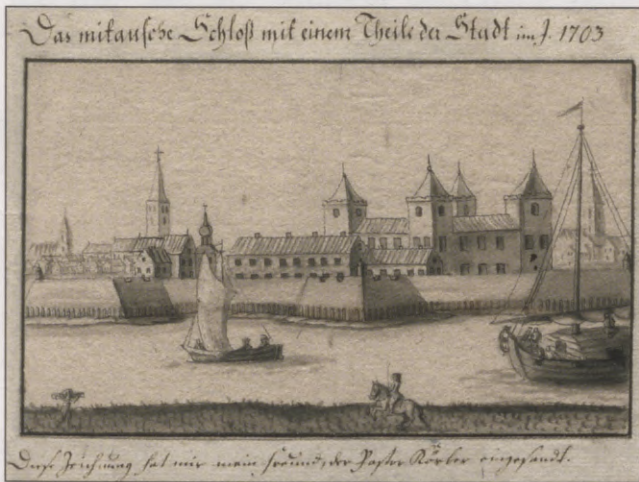 Das mitausche Schloß mit einem Theile der Stadt im J. 1703
Diese Zeichnung hat mir mein Freund, der Pastor Körber eingesandt.